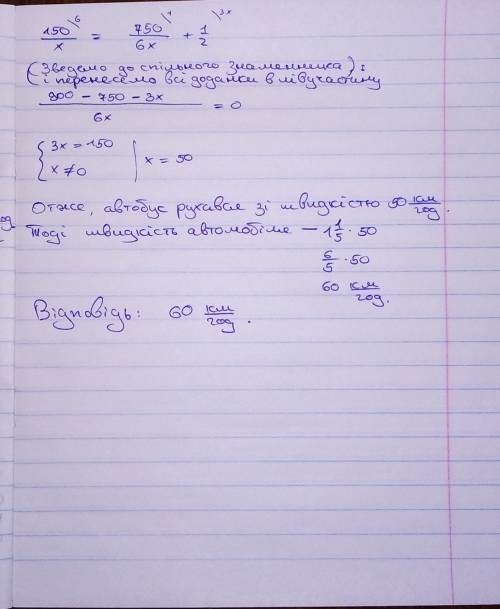 150\6 / x = 750\1 / 6x + 1\3x / 2
(Зведемо до спільного знаменника) і
(і перенесемо всі доданки в ліву частину
900 - 750 - 3x / 6x = 0
{ 3x = 150
{ x ≠ 0 | x = 50
Отже, автобус рухався зі швидкістю 50 км/год.
Тоді швидкість автомобіля — 1 1/5 · 50
6/5 · 50
60 км/год.
Відповідь: 60 км/год.